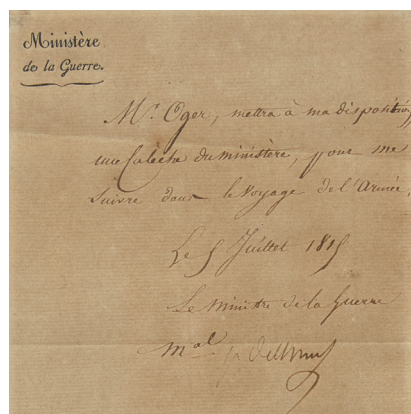 Ministère
de la Guerre.
Mr. Oger, mettra à ma disposition,
une Calèche du ministère, pour me
suivre dans le voyage de l'Armée.
Le 5 Juillet 1815
Le Ministre de la Guerre
Mal.